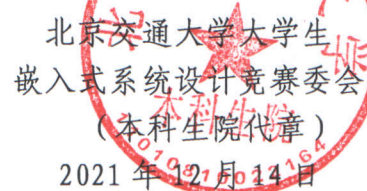 北京交通大学大学生
嵌入式系统设计竞赛委会
（本科生院代章）
2021年12月14日
本科生院